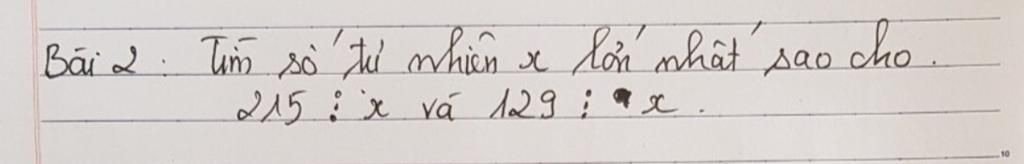 Bài 2 : Tìm số tự nhiên x lớn nhất sao cho.
215 ⋮ x và 129 ⋮ x.
10